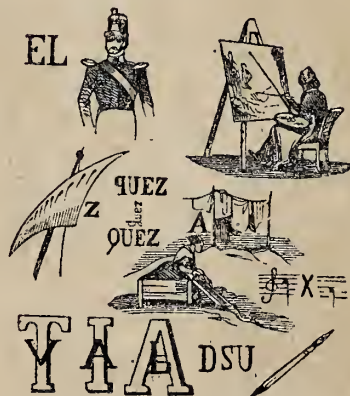 EL
Z QUEZ
quez
QUEZ
A
X
TIA
VAL
DSU